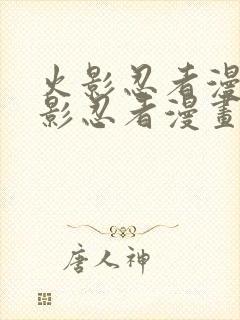 火影忍者漫
影忍者漫畫
唐人神